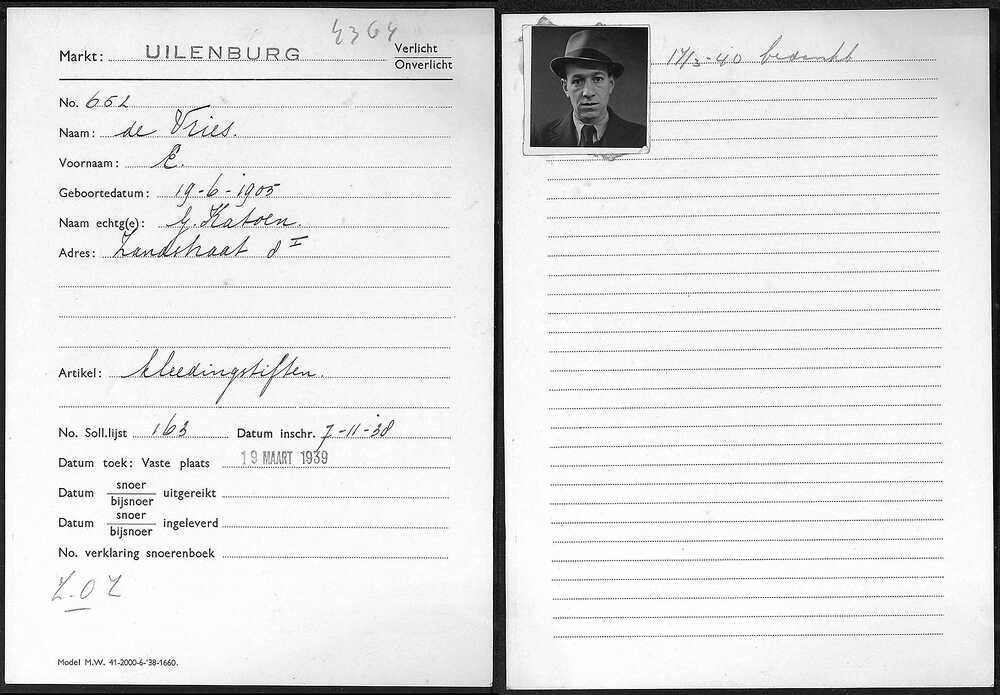 4364
Markt: UILENBURG Verlicht
Onverlicht
No. 652
Naam: de Vries.
Voornaam: E.
Geboortedatum: 19-6-1905
Naam echtg(e): G. Katoen.
Adres: Zandstraat 8 I
Artikel: kleedingstiften.
No. Soll.lijst 163 Datum inschr. 7-11-38
Datum toek: Vaste plaats 19 MAART 1939
Datum snoer/bijsnoer uitgereikt
Datum snoer/bijsnoer ingeleverd
No. verklaring snoerenboek
Z.O.Z
Model M.W. 41-2000-6-'38-1660.
17/3-40 bedankt